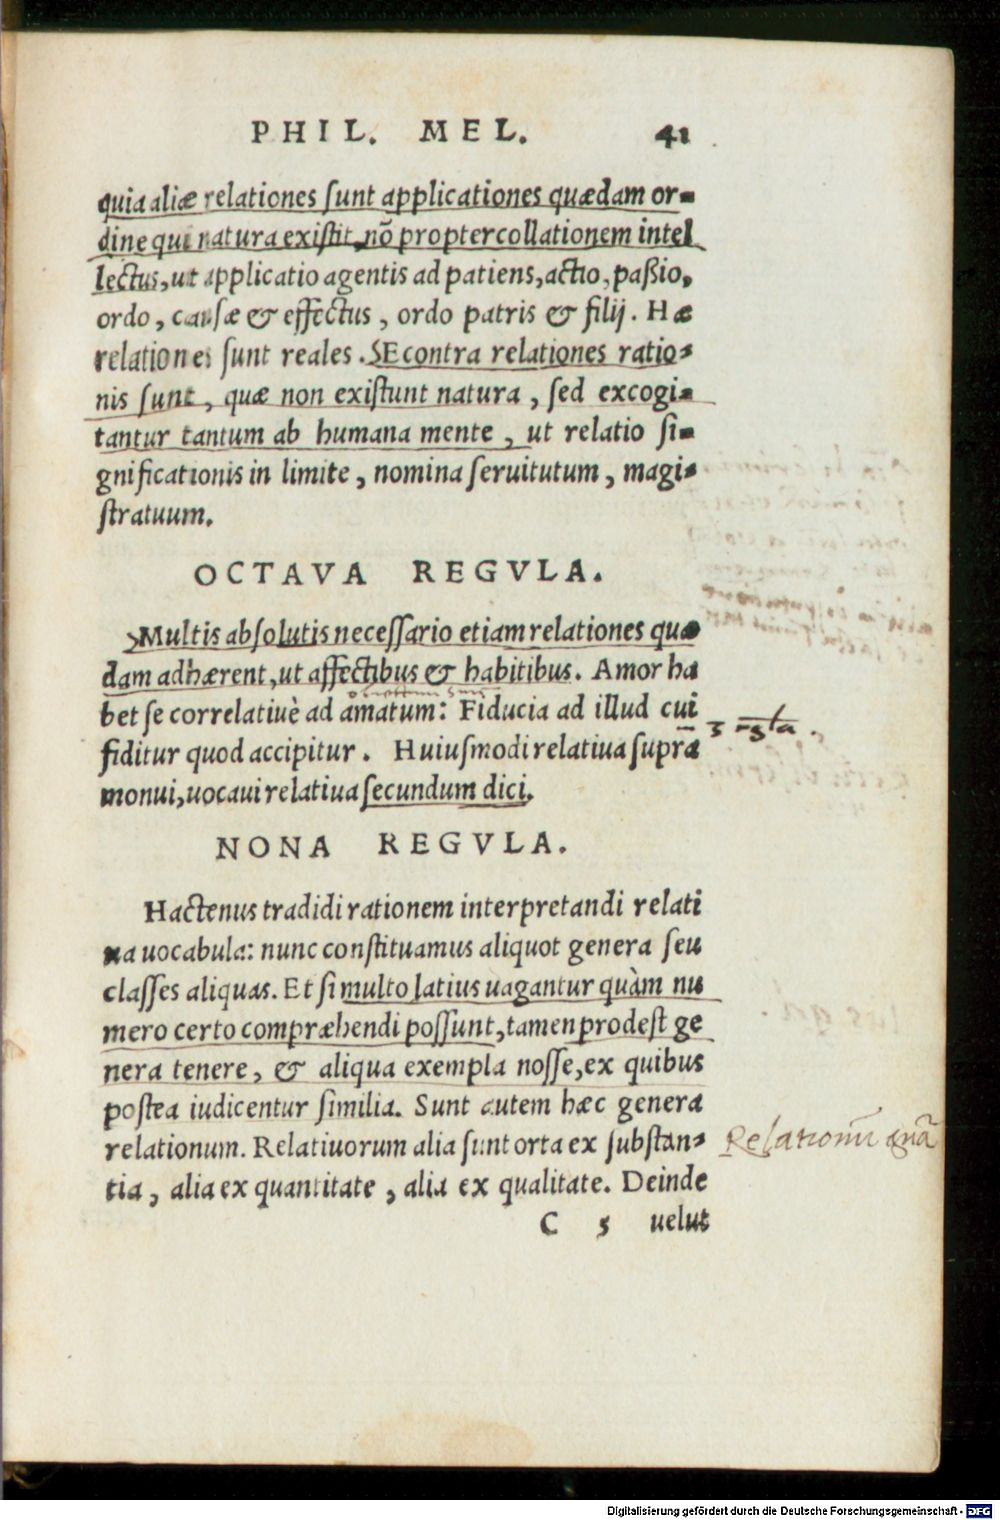 PHIL. MEL. 41
quia aliæ relationes sunt applicationes quædam or-
dine qui natura existit, nō propter collationem intel
lectus, ut applicatio agentis ad patiens, actio, paßio,
ordo, causæ & effectus, ordo patris & filij. Hæ
relationes sunt reales. SEcontra relationes ratio-
nis sunt, quæ non existunt natura, sed excogi-
tantur tantum ab humana mente, ut relatio si-
gnificationis in limite, nomina seruitutum, magi-
stratuum.
OCTAVA REGVLA.
Multis absolutis necessario etiam relationes quæ
dam adhærent, ut affectibus & habitibus. Amor ha
bet se correlatiuè ad amatum: Fiducia ad illud cui
fiditur quod accipitur. Huiusmodi relatiua supra
monui, uocaui relatiua secundum dici.
NONA REGVLA.
Hactenus tradidi rationem interpretandi relati
ua uocabula: nunc constituamus aliquot genera seu
classes aliquas. Et si multo latius uagantur quàm nu
mero certo compræhendi possunt, tamen prodest ge
nera tenere, & aliqua exempla nosse, ex quibus
postea iudicentur similia. Sunt autem hæc genera
relationum. Relatiuorum alia sunt orta ex substan-
tia, alia ex quantitate, alia ex qualitate. Deinde
C 5 uelut
Digitalisierung gefördert durch die Deutsche Forschungsgemeinschaft - DFG